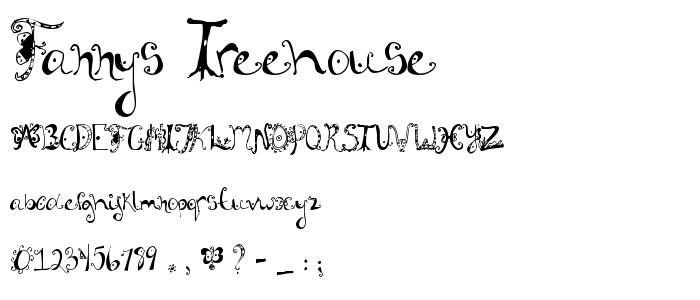 Fannys Treehouse
ABCDEFGHIJKLMNOPQRSTUVWXYZ
abcdefghijklmnopqrstuvwxyz
0123456789 . , & ? - _ : ;